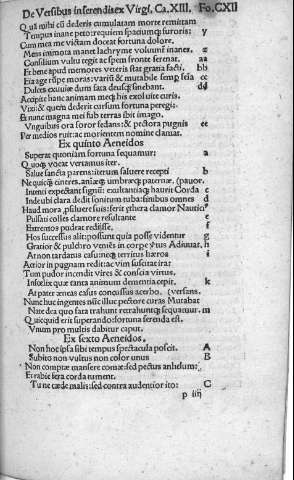 De Versibus inserendis ex Virgi. Ca. XIII. Fo. CXII
Quā mihi cū dederis cumulatam morte remittam
Tempus inane peto: requiem spaciumq; furoris: y
Cum mea me victam doceat fortuna dolore.
Mens immota manet lachrymę voluunt́ inanes. z
Consilium vultu tegit ac spem fronte serenat. aa
Et bene apud memores veteris stat gratia facti. bb
Eia age rūpe moras: variū & mutabile semp fęia cc
Dulces exuuię dum fata deusq; sinebant. dd
Accipite hanc animam meq; his exoluite curis.
Vixi: & quem dederit cursum fortuna peregi:
Et nunc magna mei sub terras ibit imago.
Vnguibus ora soror fędans: & pectora pugnis ee
Per medios ruit: ac morientem nomine clamat.
Ex quinto Aeneidos
Superat quoniam fortuna sequamur: a
Quoq; vocat vertamus iter.
Salue sancta parens: iterum saluete recepti b
Nequicq; cineres. animęq; umbręq; paternae. (pauor.
Intenti expectant signū: exultantiaq; haurit Corda c
Inde ubi clara dedit sonitum tuba: finibus omnes d
Haud mora, psiluere suis: ferit ęthera clamor Nautic⁹
Pulsati colles clamore resultant e
Extremos pudeat redisse, f
Hos successus alit: possunt quia posse videntur g
Gratior & pulchro veniēs in corpe virtus Adiuuat. h
At non tardatus casu neq; territus hæros i
Acrior in pugnam redit: ac vim suscitat ira:
Tum pudor incendit vires & conscia virtus.
Infœlix quæ tanta animum dementia cepit. k
At pater æneas casus concussus acerbo. (versans.
Nunc huc ingentes nūc illuc pectore curas Mutabat
Nate dea quo fata trahunt retrahuntq; sequamur. m
Quicquid erit superando: fortuna ferenda est.
Vnum pro multis dabitur caput.
Ex sexto Aeneidos.
Non hoc ipsa sibi tempus spectacula poscit. A
Subito non vultus non color unus B
Non comptæ mansere comæ: sed pectus anhelum:
Et rabie fera corda tument.
Tu ne cæde malis: sed contra audentior ito: C
p iiij